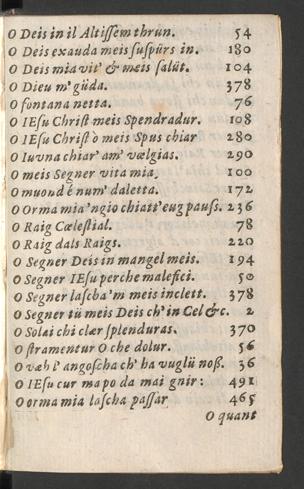 O Deis in il Altissem thrun. 54
O Deis exauda meis suspürs in. 180
O Deis mia vit' & meis salüt. 104
O Dieu m' güda. 378
O fontana netta. 76
O IEsu Christ meis Spendradur. 108
O IEsu Christ o meis Spus chiar 280
O Iuvna chiar' am' vælgias. 290
O meis Segner vita mia. 100
O muond è num' daletta. 172
O Orma mia 'ngio chiatt' eug pauss. 236
O Raig Cœlestial. 78
O Raig dals Raigs. 220
O Segner Deis in mangel meis. 194
O Segner IEsu perche malefici. 50
O Segner lascha'm meis inclett. 378
O Segner tü meis Deis ch' in Cel &c. 2
O Solai chi clær splenduras. 370
O stramentur O che dolur. 56
O væh l' angoscha ch' ha vuglü noß. 36
O IEsu cur ma po da mai gnir: 491
O orma mia lascha passar 465
O quant